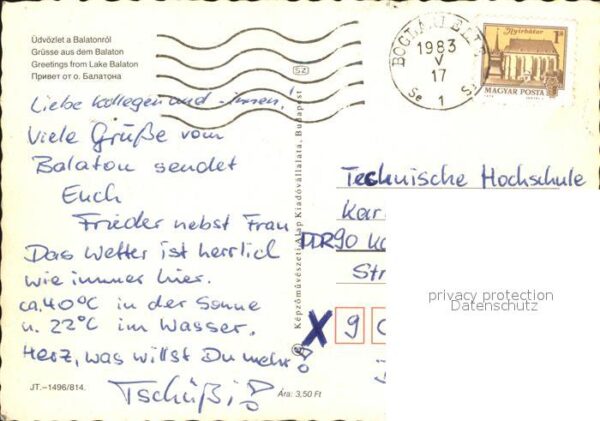 Üdvözlet a Balatonról
Grüsse aus dem Balaton
Greetings from Lake Balaton
Привет от о. Балатона
Liebe Kollegen und -innen!
Viele Grüße vom
Balaton sendet
Euch
Frieder nebst Frau
Das Wetter ist herrlich
wie immer hier.
ca. 40°C in der Sonne
u. 22°C im Wasser.
Herz, was willst Du mehr!
Tschüßi!
JT.–1496/814.
Ára: 3,50 Ft
SZ
Képzőművészeti Alap Kiadóvállalata, Budapest
1983
V
17
1
Nyírbátor
1Ft
MAGYAR POSTA
Technische Hochschule
Kar
DDR 90
Str
X 9
privacy protection
Datenschutz